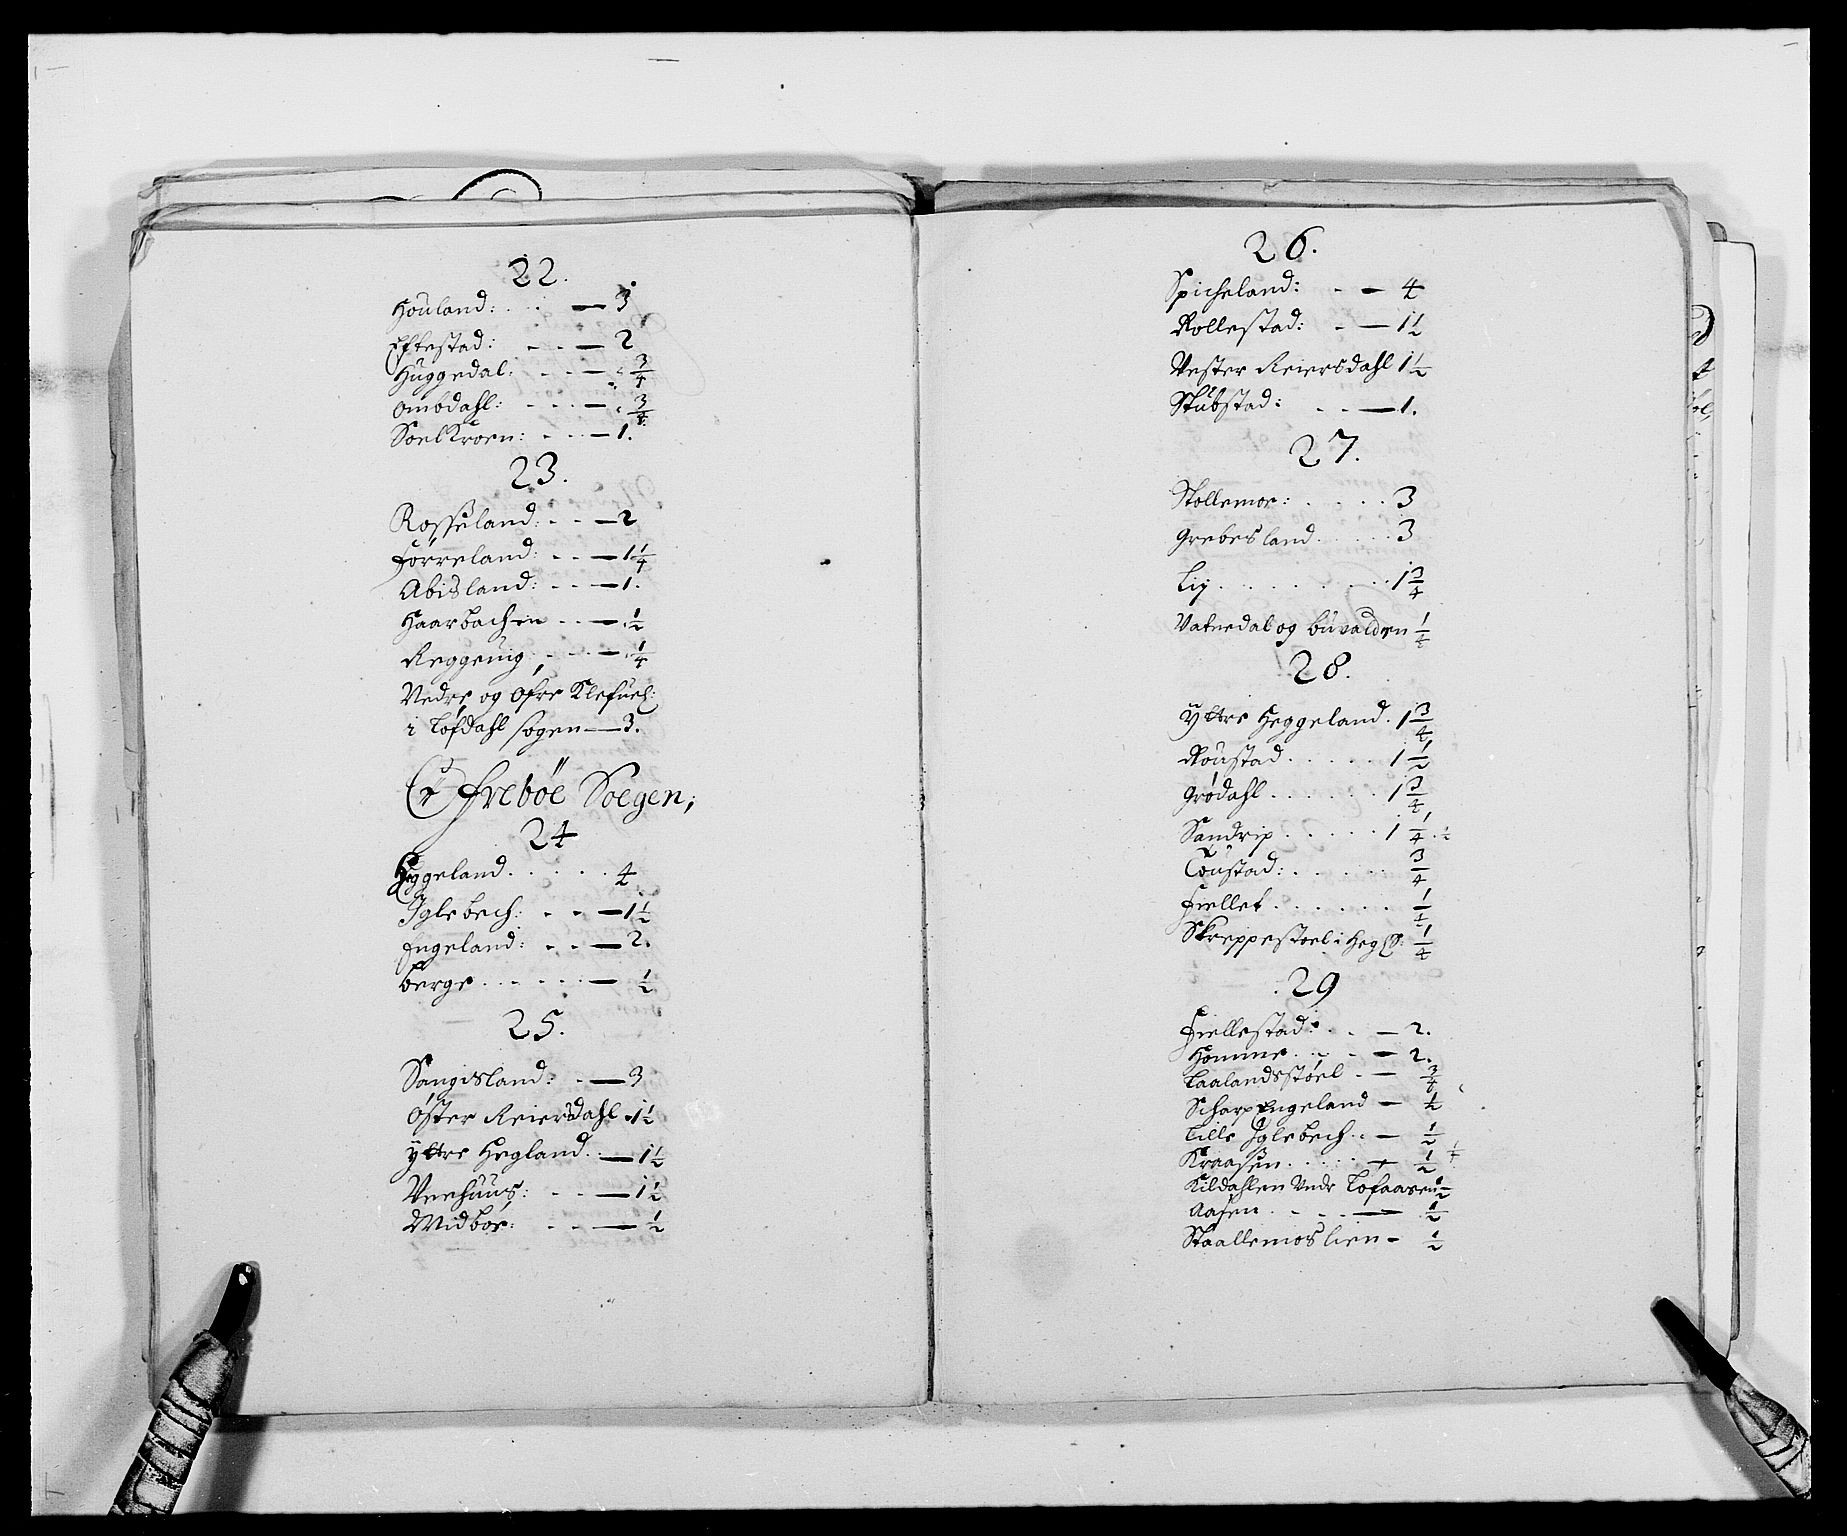 22.
Houland: . . . — 3
Eftestad: . . — 2
Huggedal: . . . — 3/4
Ombdahl: . . . — 3/4
Soelkroen: . . . — 1.
23.
Rosseland: . . — 2
Førreland: . . — 1 1/4
Abisland: . . — 1.
Haarbachen . . — 1/2
Reggevig . . . — 1/4
Nedre og Øfre Klefuel:
i Løfdahl sogen — 3.
Øfrebøe Soegen;
24
Heggeland . . . . . 4
Iglebech: . . — 1 1/2
Engeland: . . — 2.
Berge . . . . . — 1/2
25.
Sangesland: . — 3
Øster Reiersdahl . 1 1/2
Yttre Hegland . . — 1 1/2
Veehuus: . . — 1 1/2
Midbøe: . . — 1/2
26.
Spicheland: . — 4
Rollestad: . — 1 1/2
Vester Reiersdahl 1 1/2
Stubstad: . . — 1.
27.
Stollemoe: . . . . . 3
Grebesland . . . . . 3
Lij . . . . . . . . 1 3/4
Vatnedal og buvalden 1/4
28.
Yttre Heggeland . 1 3/4
Røustad . . . . . 1 1/2
Grødahl . . . . . . 1 3/4
Sandrip . . . . . 1 1/4 . 1/2
Toustad: . . . . . 3/4
Fiellet . . . . . . 1/4
Skreppestoel i Hegl S: 1/4
29
Fiellestad: . . — 2.
Homme . . . — 2.
Laalandsstøel . — 3/4
Scharpengeland — 1/2
Lille Iglebech . . — 1/2
Kraasen . . . . . — 1/2 1/4
Kildahlen Nedr Løfaasen 1/2
Aasen . . . . — 1/2
Staallemoslien — 1/2